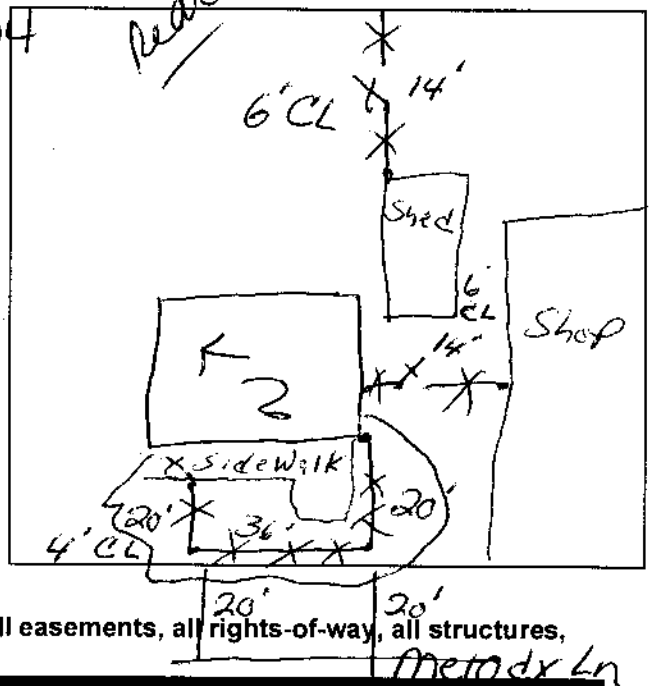 6' CL 14'
Shed
6' CL
Shop
14'
Sidewalk
20' 36' 20'
4' CL
20' 20'
ll easements, all rights-of-way, all structures,
Ln